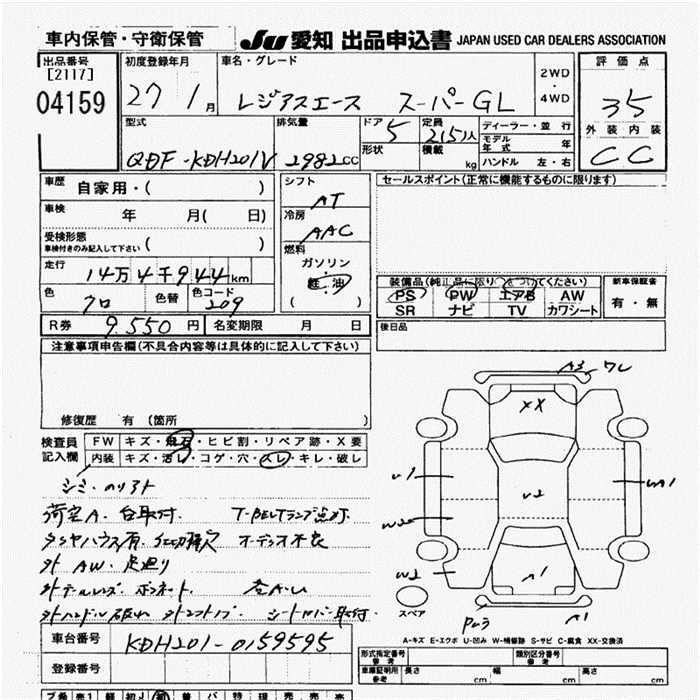 車内保管・守衛保管 JU 愛知 出品申込書 JAPAN USED CAR DEALERS ASSOCIATION
出品番号 [2117] 04159
初度登録年月 27 1月
車名・グレード レジアスエース スーパーGL
2WD・4WD
評価点 3.5
外装 内装 C C
型式 QDF-KDH201V
排気量 2982cc
ドア 5 形状
定員 2(5)人 積載 kg
ディーラー・並行
モデル年式 年
ハンドル 左・右
車歴 自家用・( )
車検 年 月( 日)
受検形態 車検付きのみ記入して下さい ( )
走行 14万4千944km
色 クロ 色替 色コード 209
シフト AT
冷房 AAC
燃料 ガソリン・軽油 ( )
セールスポイント(正常に機能するものに限ります)
装備品(純正品に限り○をつけてください)
PS PW エアB AW
SR ナビ TV カワシート
新車保証書 有・無
R券 9,550円 名変期限 月 日
後日品
注意事項申告欄(不具合内容等は具体的に記入して下さい)
修復歴 有 (箇所 )
検査員記入欄
FW キズ・飛石・ヒビ割・リペア跡・X要
内装 キズ・汚レ・コゲ・穴・スレ・キレ・破レ
シミ・のりアト
荷室A・台取付. T-BELTランプ点灯
タイヤハウス有. オーディオ不良
外 AW. 足廻り
シートカバー取付.
A3 ワレ
XX
U1
U2
W2
W2
A1
A1
スペア
A-キズ E-エクボ U-凹み W-補修跡 S-サビ C-腐食 XX-交換済
車台番号 KDH201-0159595
登録番号
形式指定番号 参考
類別区分番号 参考
車庫証明用 参考 長さ cm 幅 cm 高さ cm